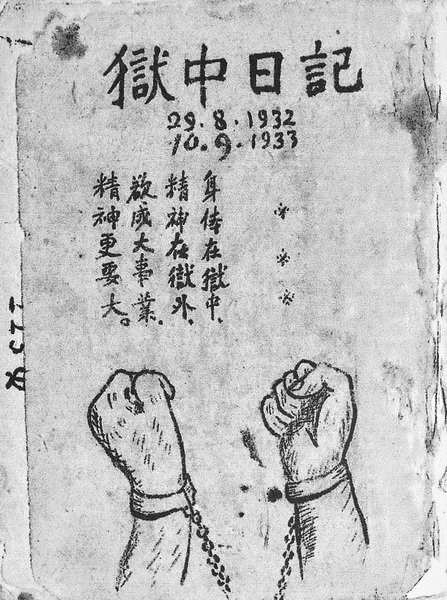 獄中日記
29.8.1932
10.9.1933
* * *
身体在獄中、
精神在獄外、
欲成大事業、
精神更要大。